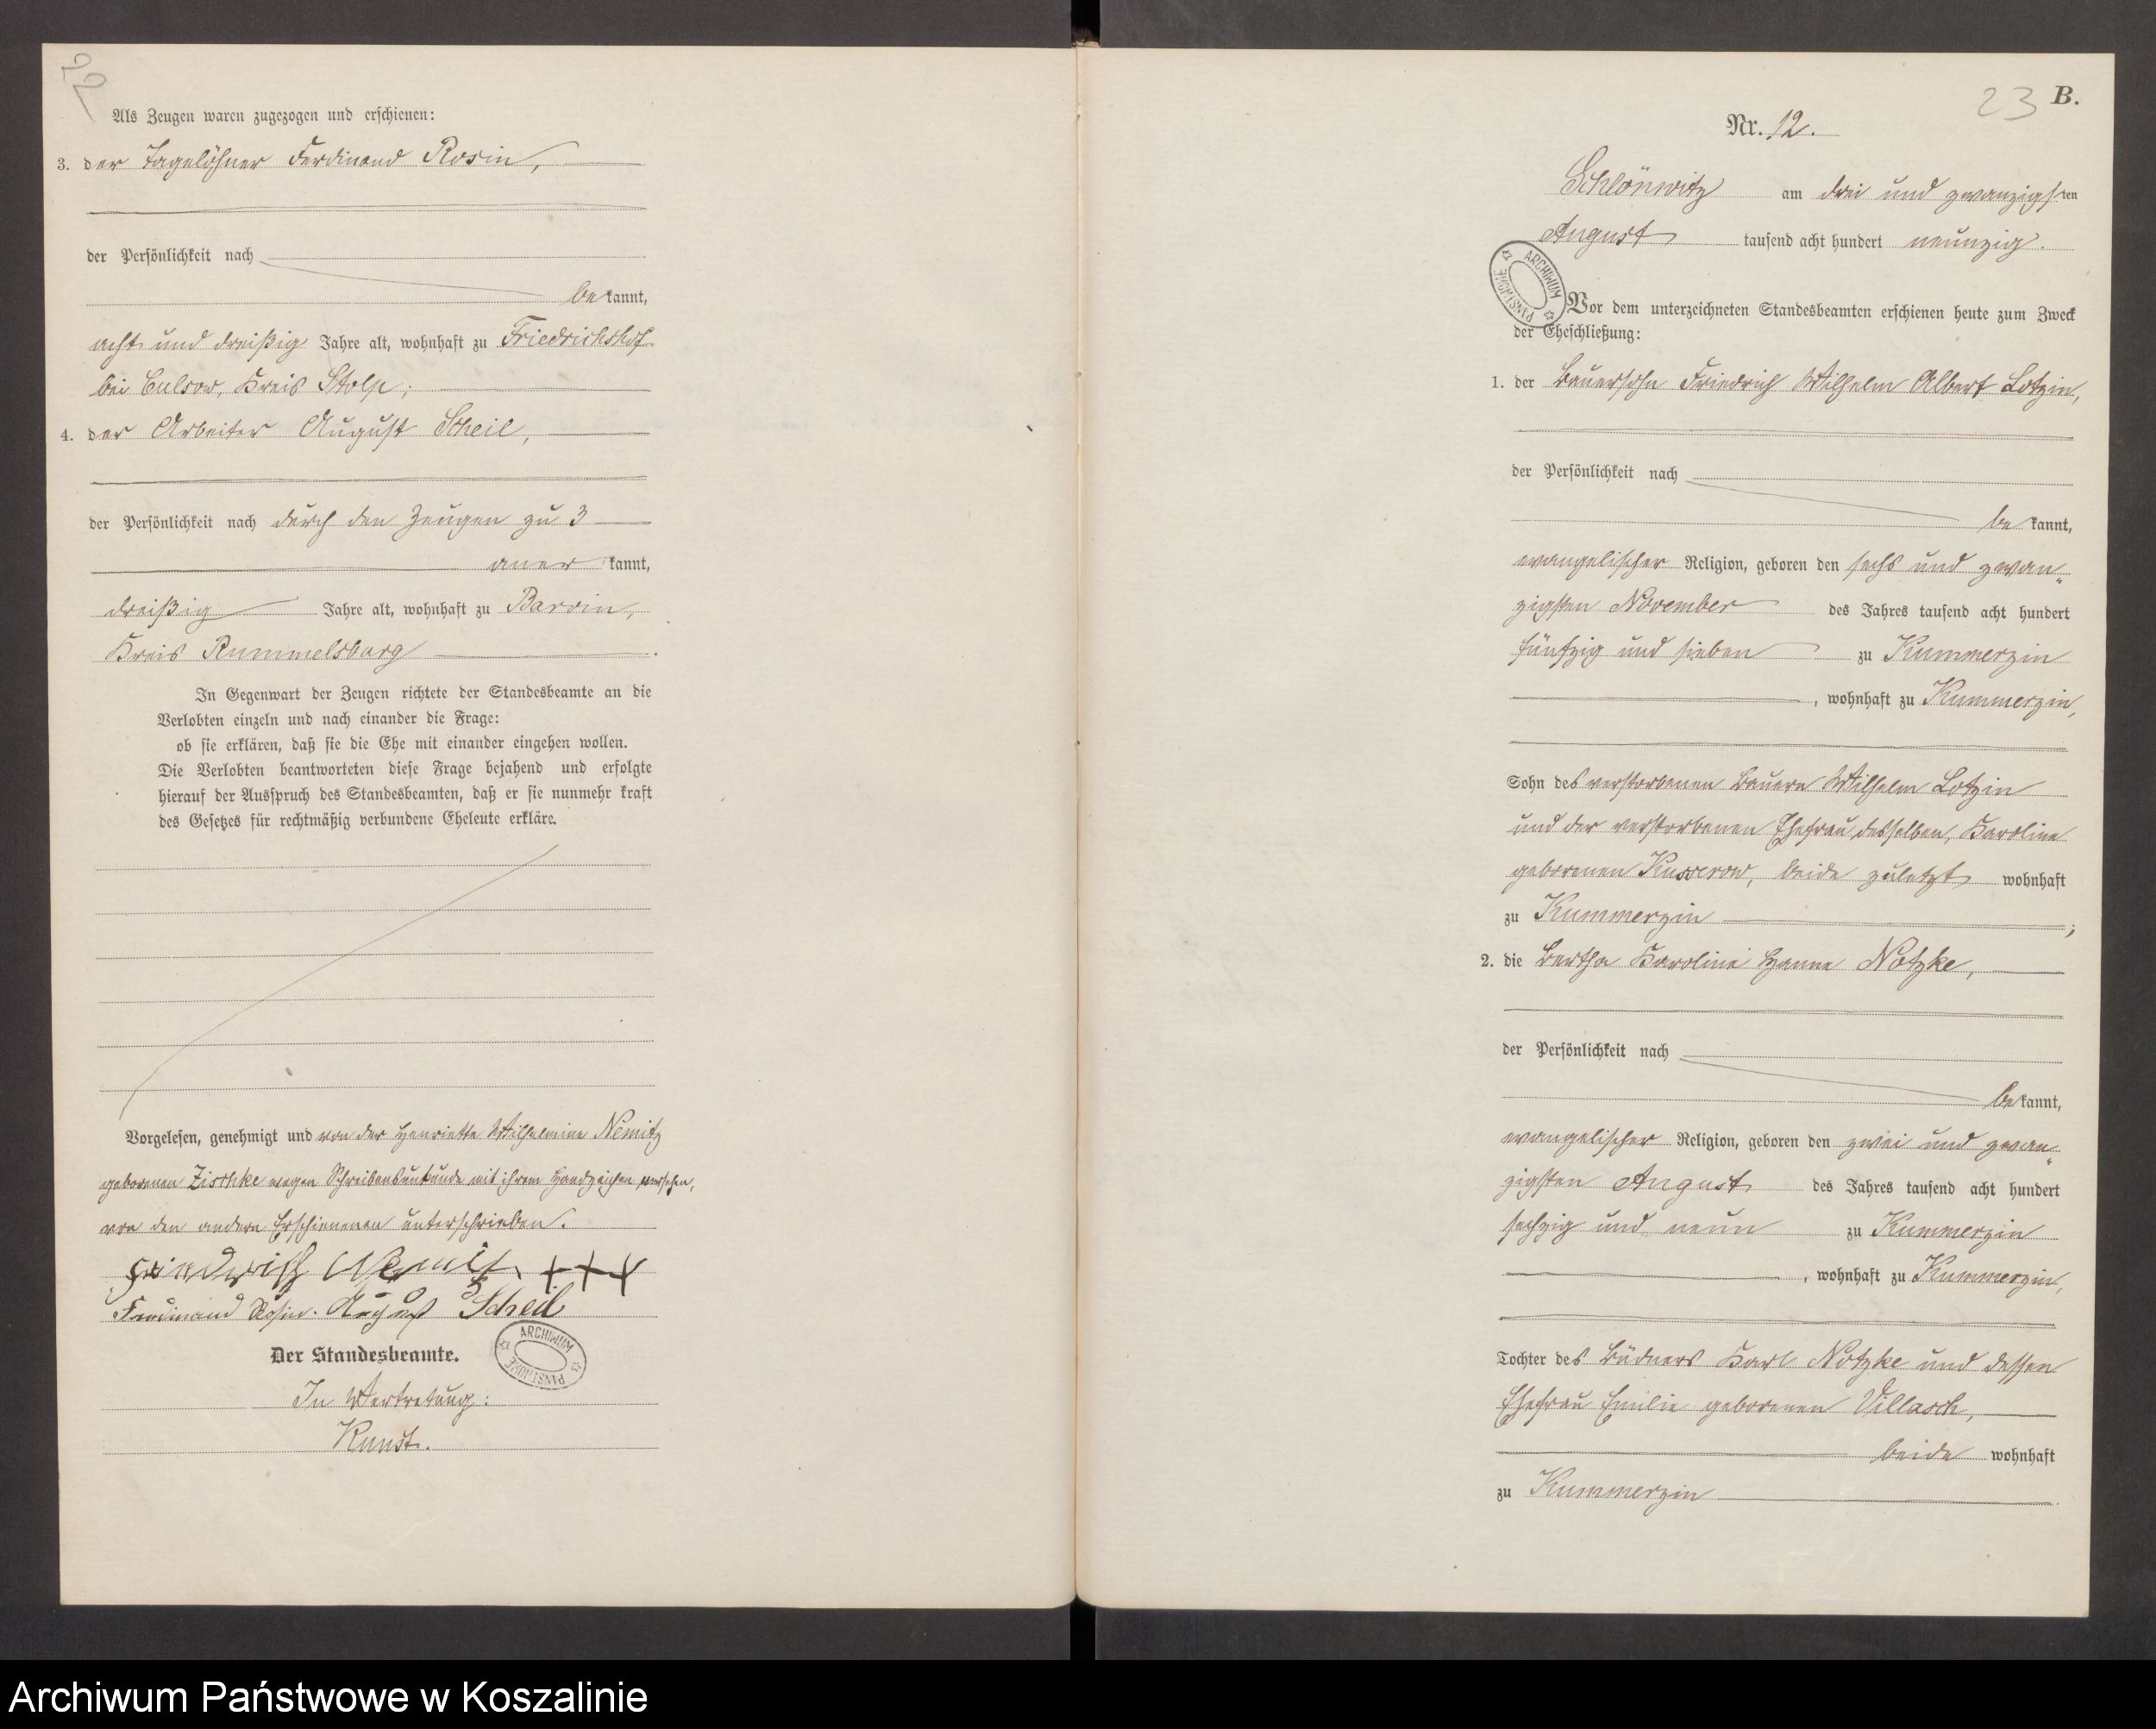 22
Als Zeugen waren zugezogen und erschienen:
3. der Tagelöhner Ferdinand Rosin,
der Persönlichkeit nach
bekannt,
acht und dreißig Jahre alt, wohnhaft zu Friedrichshof
bei Culsow, Kreis Stolp;
4. der Arbeiter August Scheil,
der Persönlichkeit nach durch den Zeugen zu 3
anerkannt,
dreißig Jahre alt, wohnhaft zu Barvin,
Kreis Rummelsburg.
In Gegenwart der Zeugen richtete der Standesbeamte an die
Verlobten einzeln und nach einander die Frage:
ob sie erklären, daß sie die Ehe mit einander eingehen wollen.
Die Verlobten beantworteten diese Frage bejahend und erfolgte
hierauf der Ausspruch des Standesbeamten, daß er sie nunmehr kraft
des Gesetzes für rechtmäßig verbundene Eheleute erkläre.
Vorgelesen, genehmigt und von der Henriette Wilhelmine Nemitz
geborenen Zischke wegen Schreibensunkunde mit ihrem Handzeichen versehen,
von den andern Erschienenen unterschrieben.
Friedrich Nemitz +++
Ferdinand Rosin. August Scheil
Der Standesbeamte.
ARCHIWUM PAŃSTWOWE
In Vertretung:
Kunst.
23 B.
Nr. 12.
Schlönwitz am drei und zwanzigsten
August tausend acht hundert neunzig.
ARCHIWUM PAŃSTWOWE
Vor dem unterzeichneten Standesbeamten erschienen heute zum Zweck
der Eheschließung:
1. der Bauersohn Friedrich Wilhelm Albert Lotzin,
der Persönlichkeit nach
bekannt,
evangelischer Religion, geboren den sechs und zwan„
zigsten November des Jahres tausend acht hundert
fünfzig und sieben zu Kummerzin
, wohnhaft zu Kummerzin,
Sohn des verstorbenen Bauern Wilhelm Lotzin
und der verstorbenen Ehefrau desselben, Karoline
geborenen Kusserow, beide zuletzt wohnhaft
zu Kummerzin ;
2. die Bertha Karoline Hanne Notzke,
der Persönlichkeit nach
bekannt,
evangelischer Religion, geboren den zwei und zwan„
zigsten August des Jahres tausend acht hundert
sechzig und neun zu Kummerzin
, wohnhaft zu Kummerzin,
Tochter des Büdners Karl Notzke und dessen
Ehefrau Emilie geborenen Villasch,
beide wohnhaft
zu Kummerzin
Archiwum Państwowe w Koszalinie